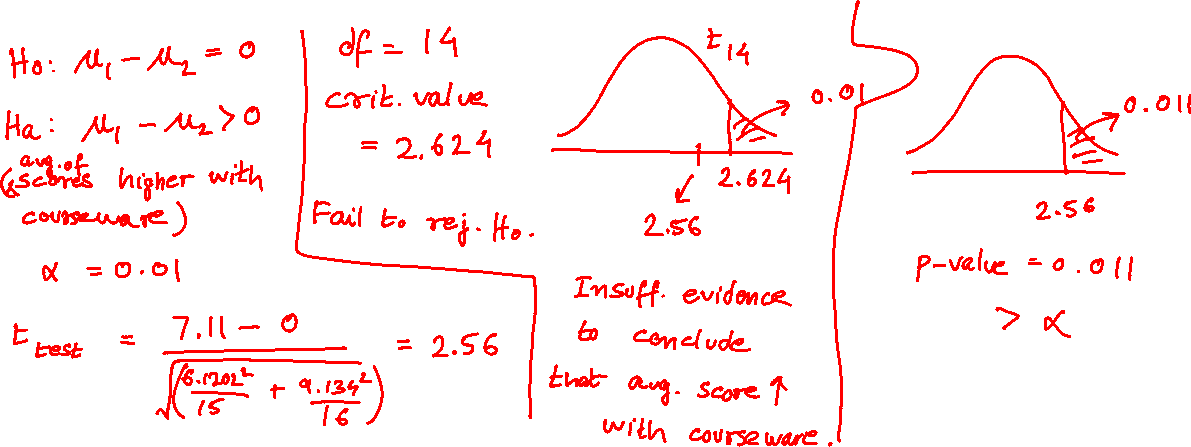 H₀: μ₁ - μ₂ = 0
Hₐ: μ₁ - μ₂ > 0
avg. of
scores higher with
courseware)
α = 0.01
t test = 7.11 - 0 / √(6.1202²/15 + 9.134²/16) = 2.56
df = 14
crit. value
= 2.624
Fail to rej. H₀.
t₁₄
0.01
2.624
2.56
Insuff. evidence
to conclude
that avg. score ↑
with courseware.
0.011
2.56
p-value = 0.011
> α